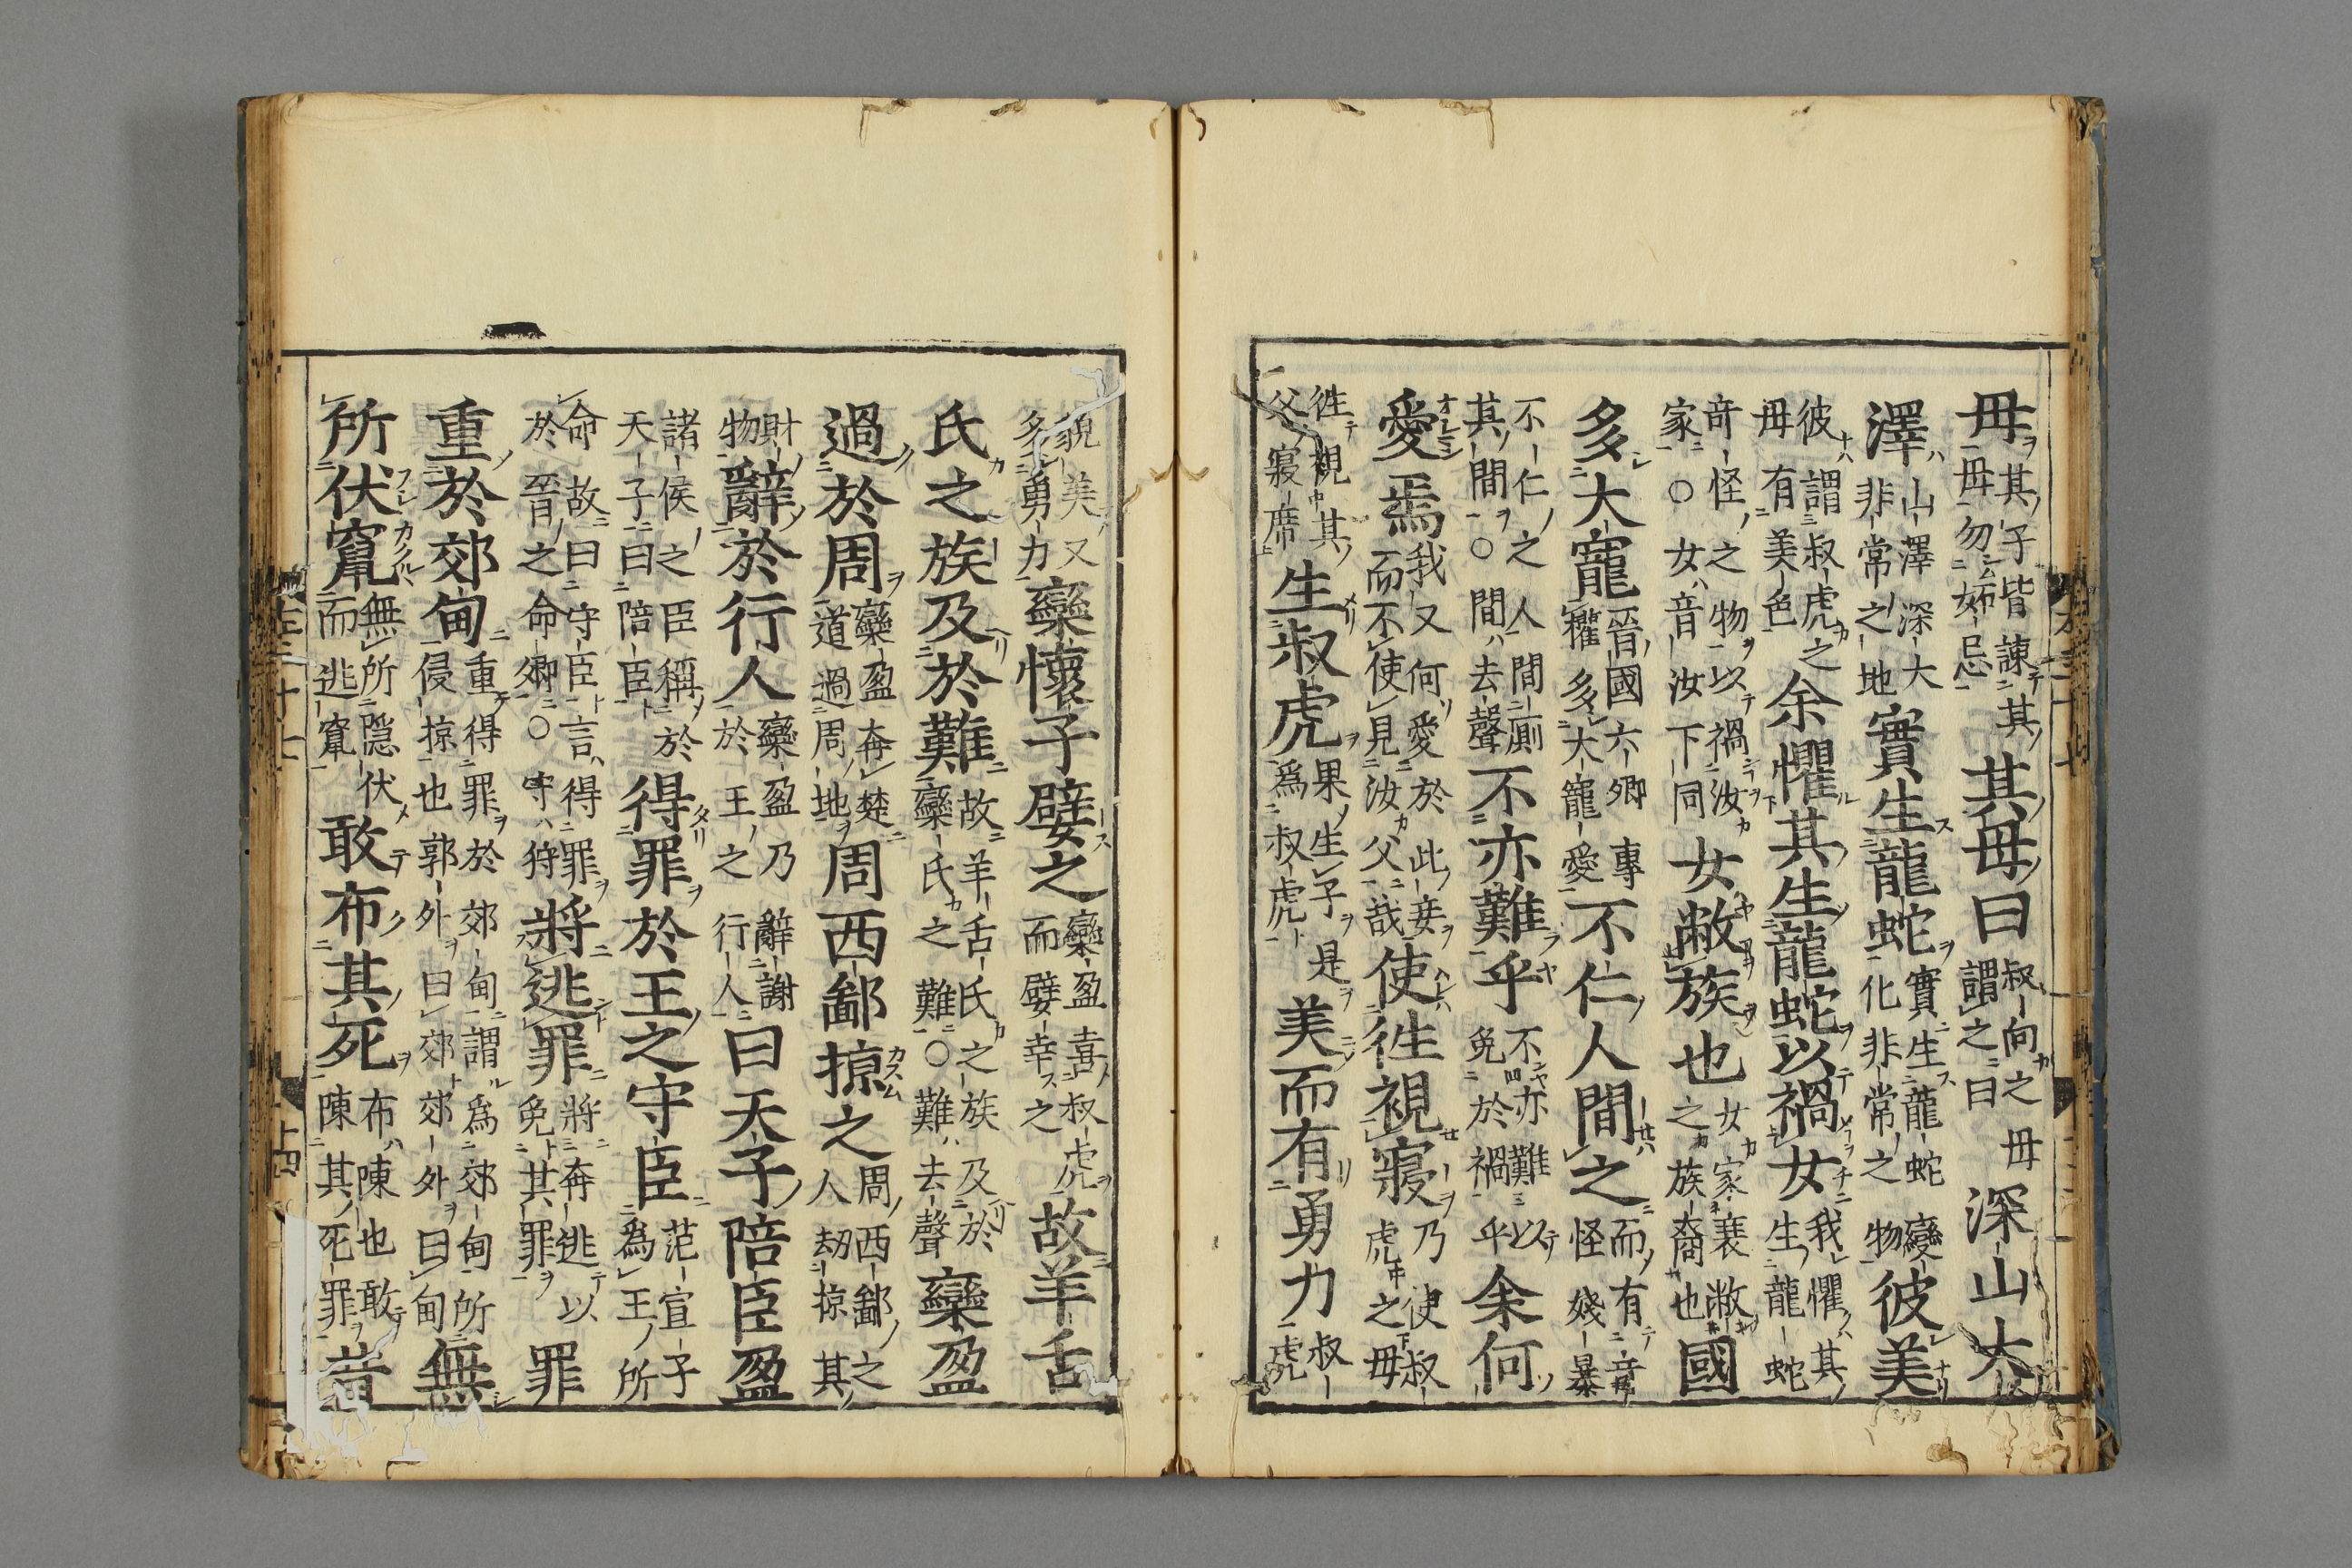 毋毋勿妬忌其子皆諫其其母曰叔向之毋謂之曰深山大
澤山澤深大非常之地實生龍蛇實生龍蛇化非常之變物彼美
彼謂叔虎之毋有美色余懼其生龍蛇以禍女我懼其生龍蛇
竒怪之物以禍汝家○女音汝下同女敝族也女家衰敝之族裔也國
多大寵晉國六卿專權多大寵愛不仁人間之而有怪音殘暴
不仁之人間廁其間○間去聲不亦難乎不亦難以免於禍乎余何
愛焉我又何愛於此妾而不使見汝父哉使往視寢乃使叔虎之毋
徃視其父寢席生叔虎果生子是爲叔虎美而有勇力叔虎
貌美又多勇力欒懷子嬖之欒盈喜叔虎而嬖幸之故羊舌
氏之族及於難故羊舌氏之族及於欒氏之難○難去聲欒盈
過於周欒盈奔楚道過周地周西鄙掠之周西鄙之人劫掠其
財物辭於行人欒盈乃辭謝於王之行人曰天子陪臣盈
諸侯之臣稱於天子曰陪臣得罪於王之守臣范宣子爲王所
命故曰守臣言得罪於晉之命卿○守狩將逃罪將奔逃以免其罪罪
重於郊甸重得罪於郊甸謂爲郊甸所侵掠也郭外曰郊郊外曰甸無
所伏竄無所隠伏而逃竄敢布其死布陳也敢陳其死罪昔